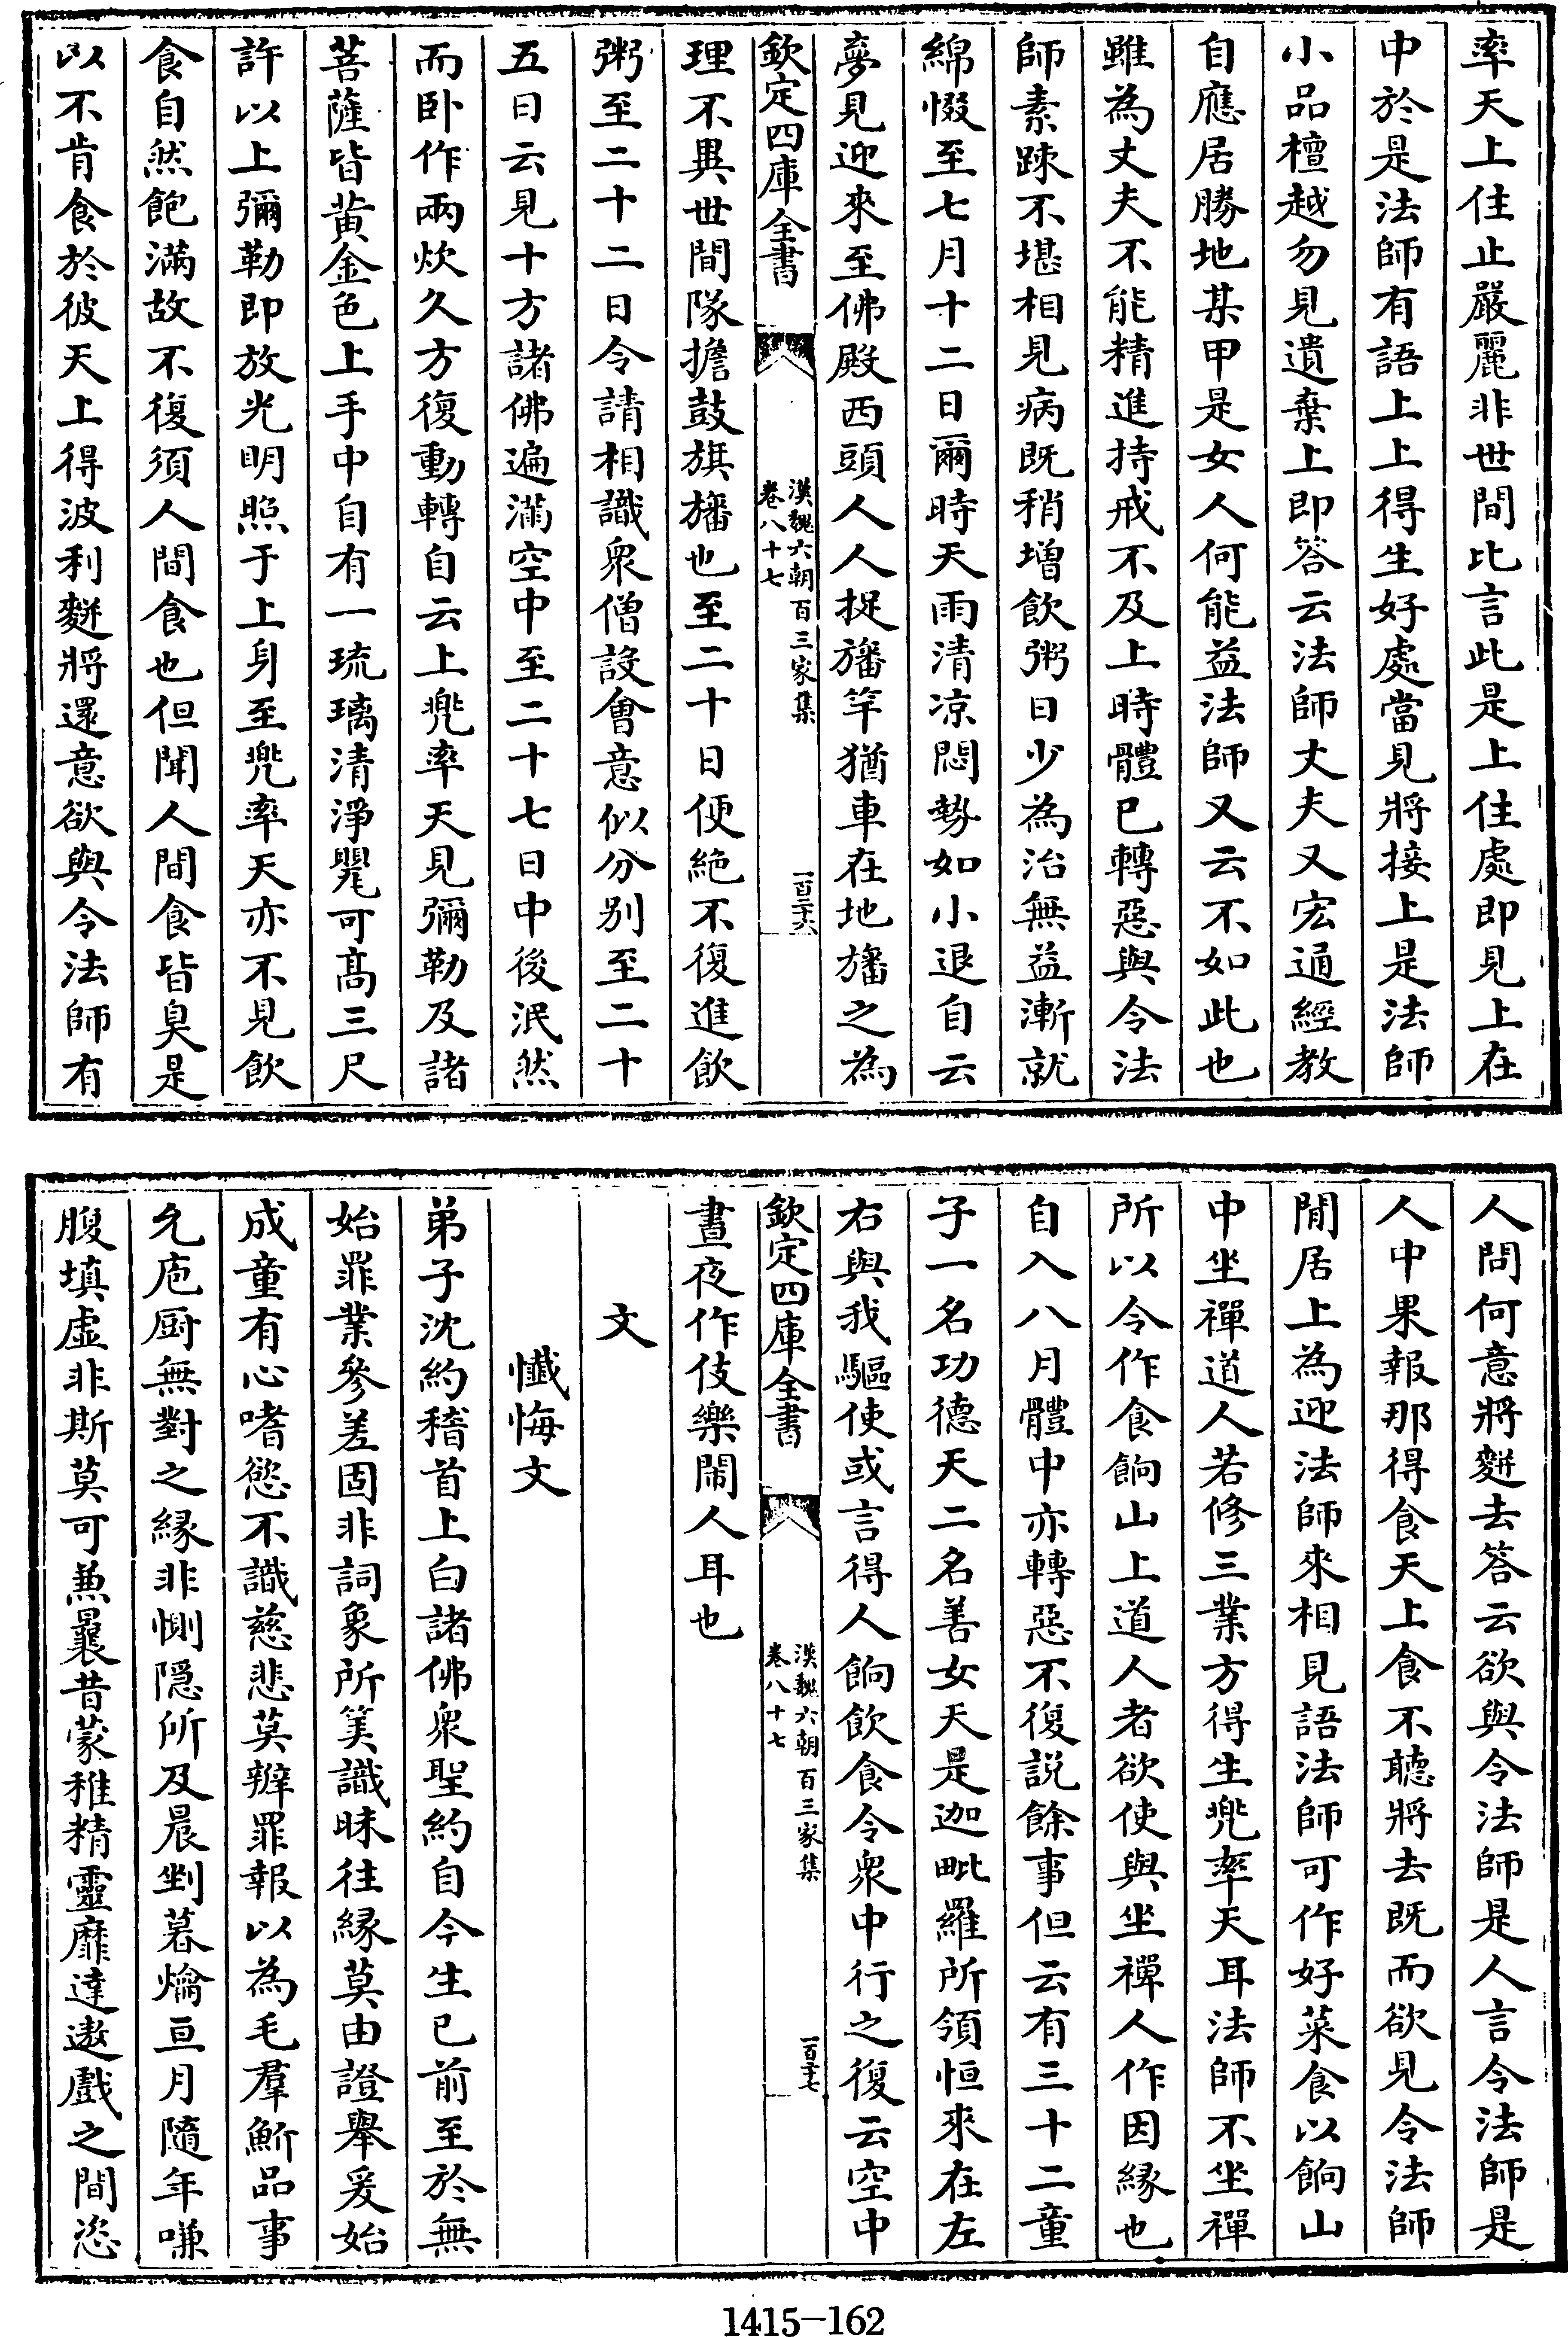 率天上住止嚴麗非世間比言此是上住處即見上在
中於是法師有語上上得生好處當見將接上是法師
小品檀越勿見遺棄上即答云法師丈夫又宏通經教
自應居勝地某甲是女人何能益法師又云不如此也
雖為丈夫不能精進持戒不及上時體已轉惡與令法
師素疎不堪相見病既稍增飲粥日少為治無益漸就
綿惙至七月十二日爾時天雨清凉悶勢如小退自云
夢見迎來至佛殿西頭人人捉旛竿猶車在地旛之為
欽定四庫全書
漢魏六朝百三家集
卷八十七
一百二十六
理不異世間隊擔鼓旗旛也至二十日便絶不復進飲
粥至二十二日令請相識衆僧設會意似分别至二十
五日云見十方諸佛遍滿空中至二十七日中後泯然
而卧作兩炊久方復動轉自云上兠率天見彌勒及諸
菩薩皆黄金色上手中自有一琉璃清淨甖可高三尺
許以上彌勒即放光明照于上身至兠率天亦不見飲
食自然飽滿故不復須人間食也但聞人間食皆臭是
以不肯食於彼天上得波利䴵將還意欲與令法師有
人問何意將䴵去答云欲與令法師是人言令法師是
人中果報那得食天上食不聽將去既而欲見令法師
閒居上為迎法師來相見語法師可作好菜食以餉山
中坐禪道人若修三業方得生兠率天耳法師不坐禪
所以令作食餉山上道人者欲使與坐禪人作因緣也
自入八月體中亦轉惡不復説餘事但云有三十二童
子一名功德天二名善女天是迦毗羅所領恒來在左
右與我驅使或言得人餉飲食令衆中行之復云空中
欽定四庫全書
漢魏六朝百三家集
卷八十七
一百二十七
晝夜作伎樂閙人耳也
文
懺悔文
弟子沈約稽首上白諸佛衆聖約自今生已前至於無
始罪業參差固非詞象所筭識昧往緣莫由證舉爰始
成童有心嗜慾不識慈悲莫辨罪報以為毛羣魪品事
允庖厨無對之緣非惻隱所及晨剉暮爚亘月隨年嗛
腹填虚非斯莫可兼曩昔蒙稚精靈靡達遨戲之間恣
1415-162